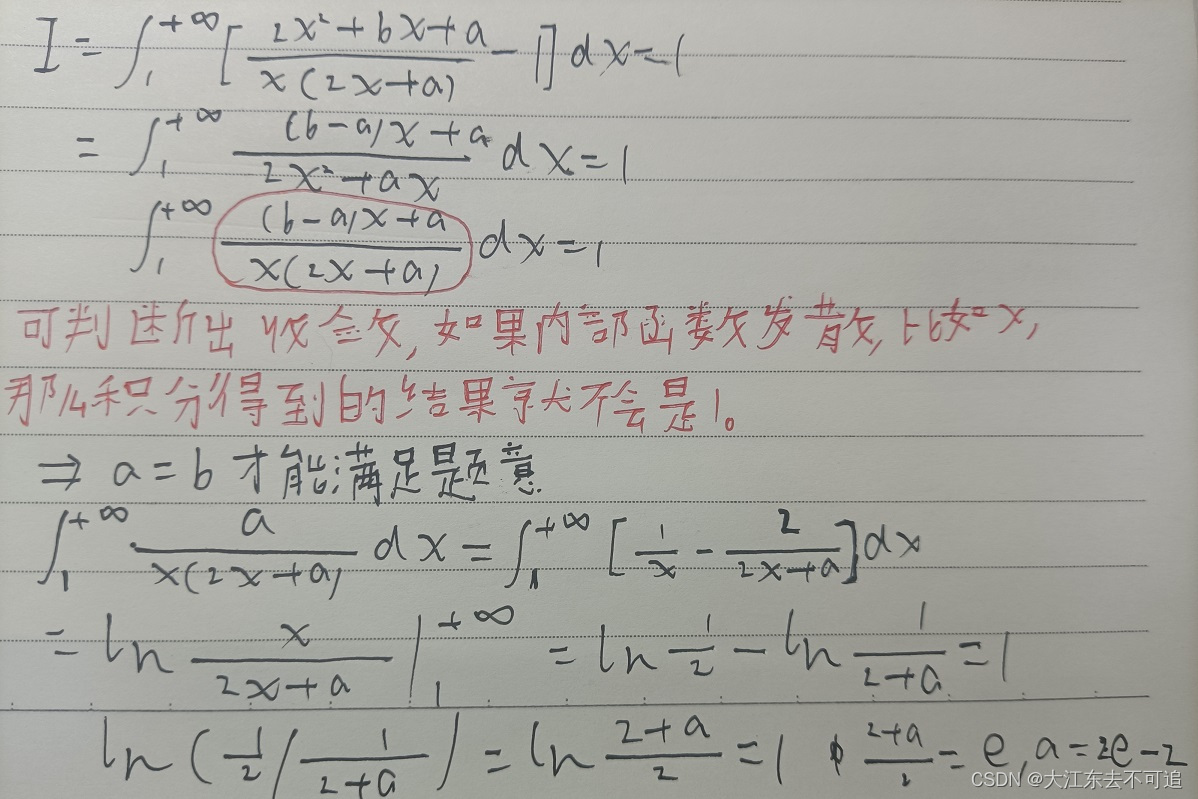 I = ∫₁^{+∞} [ (2x²+bx+a)/(x(2x+a)) - 1] dx = 1
= ∫₁^{+∞} ((b-a)x+a)/(2x²+ax) dx = 1
∫₁^{+∞} ((b-a)x+a)/(x(2x+a)) dx = 1
可判断出收敛,如果内部函数发散,比如x,
那么积分得到的结果就不会是1。
⇒ a=b 才能满足题意.
∫₁^{+∞} a/(x(2x+a)) dx = ∫₁^{+∞} [1/x - 2/(2x+a)] dx
= ln x/(2x+a) |₁^{+∞} = ln 1/2 - ln 1/(2+a) = 1
ln(1/2 / 1/(2+a)) = ln (2+a)/2 = 1 (2+a)/2 = e, a=2e-2
CSDN @大江东去不可追